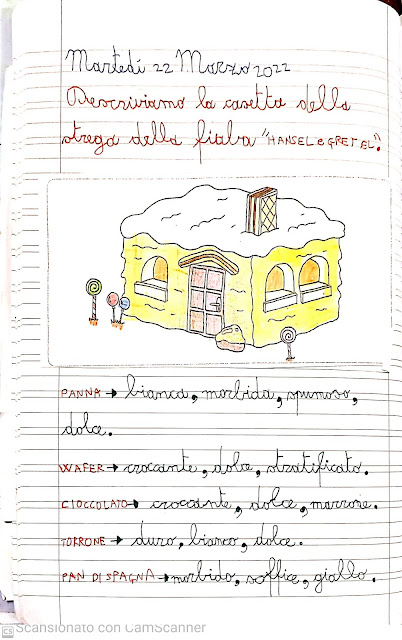 Martedì 22 Marzo 2022
Descriviamo la casetta della
strega della fiaba "HANSEL e GRETEL".
PANNA → bianca, morbida, spumoso,
dolce.
WAFER → croccante, dolce, stratificato.
CIOCCOLATO → croccante, dolce, marrone.
TORRONE → duro, bianco, dolce.
PAN DI SPAGNA → morbido, soffice, giallo.
CS Scansionato con CamScanner